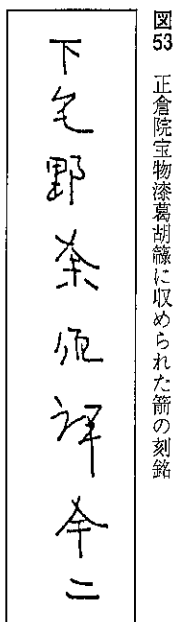 図53 正倉院宝物漆葛胡籙に収められた箭の刻銘
下毛野奈須評全二